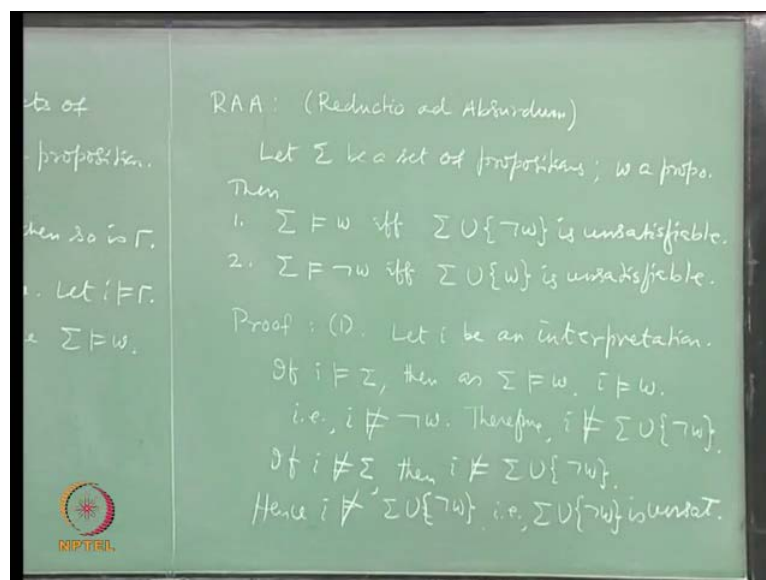 ts of
proposition.
then so is Γ.
. Let i ⊨ Γ.
Σ ⊨ w.
RAA : (Reductio ad Absurdum)
Let Σ be a set of propositions ; w a propo.
Then
1. Σ ⊨ w iff Σ ∪ {¬w} is unsatisfiable.
2. Σ ⊨ ¬w iff Σ ∪ {w} is unsatisfiable.
Proof : (1). Let i be an interpretation.
If i ⊨ Σ, then as Σ ⊨ w, i ⊨ w.
i.e., i ⊭ ¬w. Therefore, i ⊭ Σ ∪ {¬w}.
If i ⊭ Σ then i ⊭ Σ ∪ {¬w}.
Hence i ⊭ Σ ∪ {¬w}. i.e., Σ ∪ {¬w} is unsat.
NPTEL